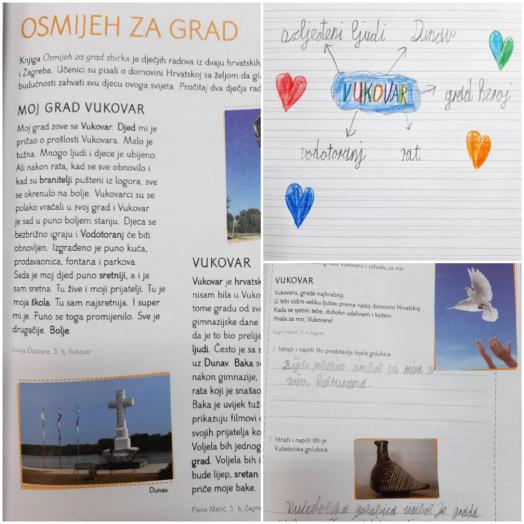 OSMIJEH ZA GRAD
Knjiga Osmijeh za grad zbirka je dječjih radova iz dvaju hrvatskih
i Zagreba. Učenici su pisali o domovini Hrvatskoj sa željom da gl
budućnosti zahvati svu djecu ovoga svijeta. Pročitaj dva dječja rad
MOJ GRAD VUKOVAR
Moj grad zove se Vukovar. Djed mi je
pričao o prošlosti Vukovara. Malo je
tužna. Mnogo ljudi i djece je ubijeno.
Ali nakon rata, kad se sve obnovilo i
kad su branitelji pušteni iz logora, sve
se okrenulo na bolje. Vukovarci su se
polako vraćali u svoj grad i Vukovar
je sad u puno boljem stanju. Djeca se
bezbrižno igraju i Vodotoranj će biti
obnovljen. Izgrađeno je puno kuća,
prodavaonica, fontana i parkova.
Sada je moj djed puno sretniji, a i ja
sam sretna. Tu žive i moji prijatelji. Tu je
moja škola. Tu sam najsretnija. I super
mi je. Puno se toga promijenilo. Sve je
drugačije. Bolje.
Lucija Duspara, 3. b, Vukovar
Dunav
VUKOVAR
Vukovar je hrvatsk
nisam bila u Vuko
tome gradu od sv
gimnazijske dane
da je to bio prelije
ljudi. Često je sa s
uz Dunav. Baka s
nakon gimnazije,
rata koji je snašao
Baka je uvijek tuž
prikazuju filmovi o
svojih prijatelja ko
Voljela bih jednog
grad. Voljela bih i
bude lijep, sretan
priče moje bake.
Elena Matić, 5. b, Zagre
ozljeđeni ljudi Dunav
VUKOVAR
grad heroj
vodotoranj rat
VUKOVAR
Vukovaru, grade najhrabriji.
U tebi vidim veliku ljubav prema našoj domovini Hrvatskoj.
Kada se sjetim tebe, duboko udahnem i kažem:
Hvala ti mir, Vukovare!
2. Istraži i napiši što predstavlja bijela golubica.
Bijela golubica simbol je mira
3. Istraži i napiši što je
Vučedolska golubica.
Vučedolska golubica simbol je grada